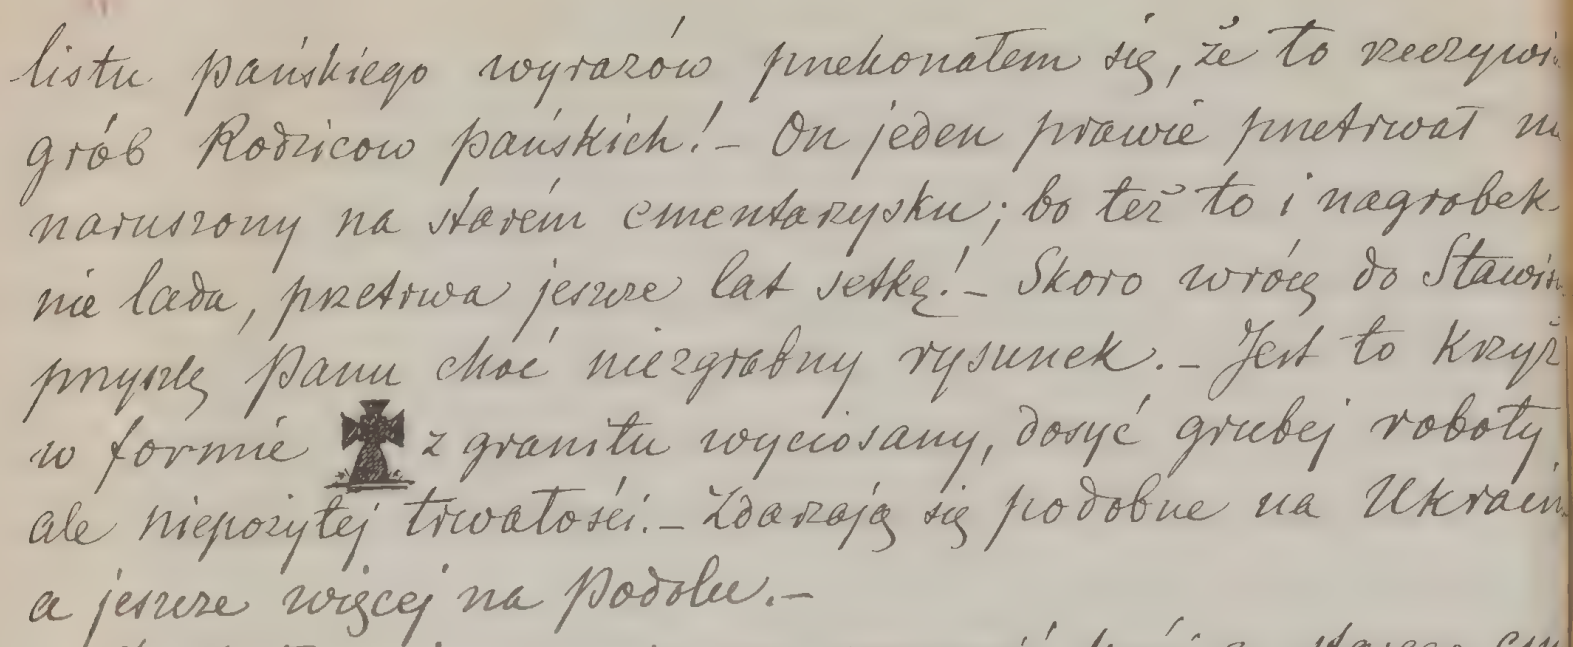 listu pańskiego wyrazów przekonałem się, że to rzeczywi
grób Rodzicow pańskich! – On jeden prawie przetrwał
naruszony na starém cmentarzysku; bo też to i nagrobek
nie lada, przetrwa jeszcze lat setkę! – Skoro wrócę do Stawis
przyszlę Panu choć niezgrabny rysunek. – Jest to Krzyż
w formie z granitu wyciosany, dosyć grubej roboty
ale niepożytej trwałości. – Zdarzają się podobne na Ukrain
a jeszcze więcej na Podolu. –